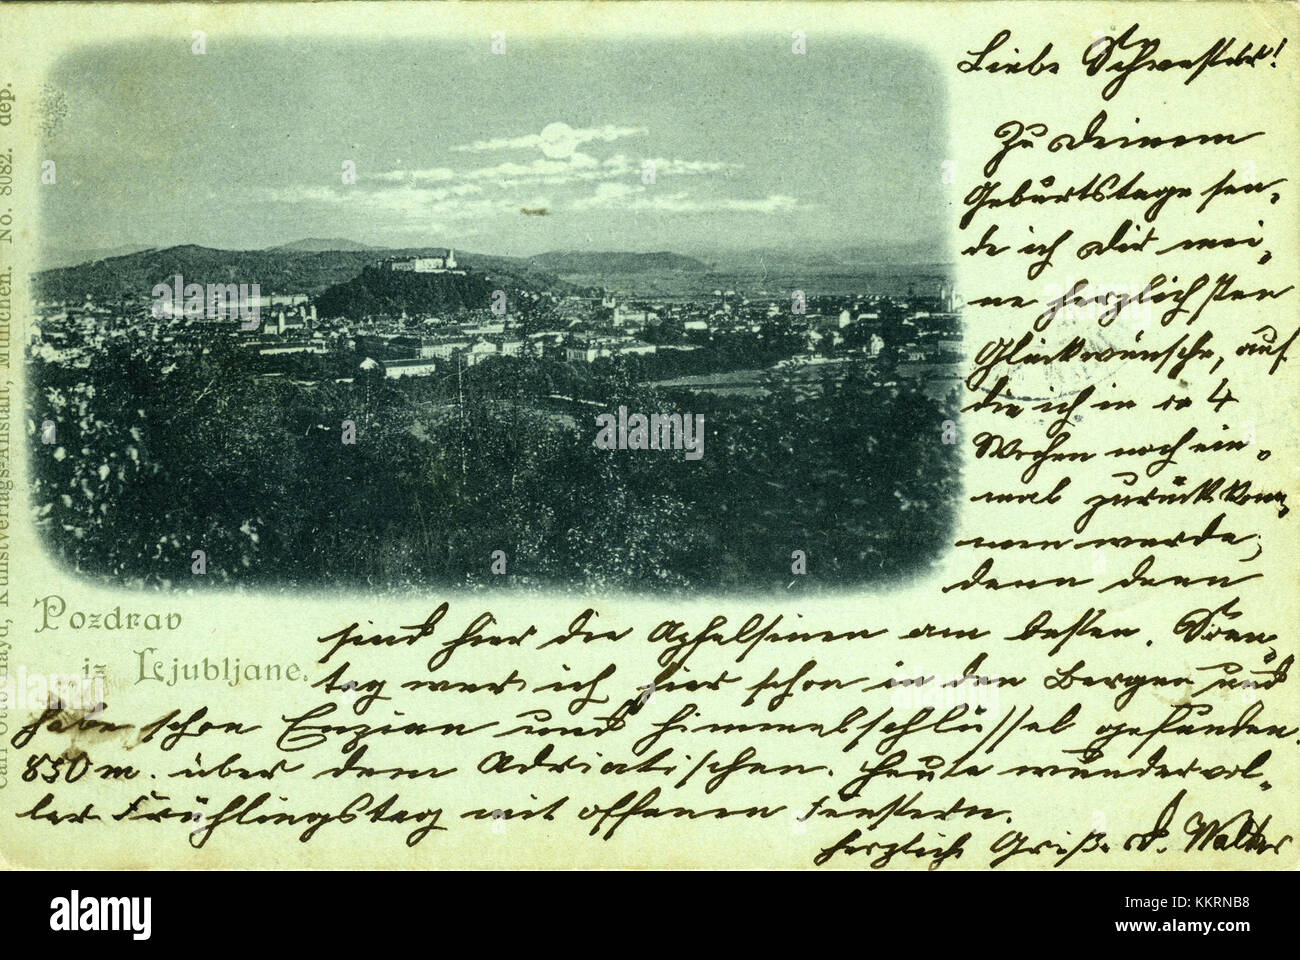 Liebe Schwester!
Zu Deinem
Geburtstage sen-
de ich Dir mei-
ne herzlichsten
Glückwünsche, auf
die ich in ca 4
Wochen noch ein-
mal zurückkom-
men werde,
denn dann
sind hier die Apfelsinen am besten. Sonn-
tag war ich hier schon in den Bergen und
habe schon Enzian und Himmelsschlüssel gefunden.
850 m. über dem Adriatischen. Heute wundervol-
ler Frühlingstag mit offenen Fenstern.
herzliche Grüße D. Walter
Pozdrav
iz Ljubljane.
Carl Otto Hayd, Kunstverlags-Anstalt, München. No. 8082. dep.
alamy
Image ID: KKRNB8
www.alamy.com